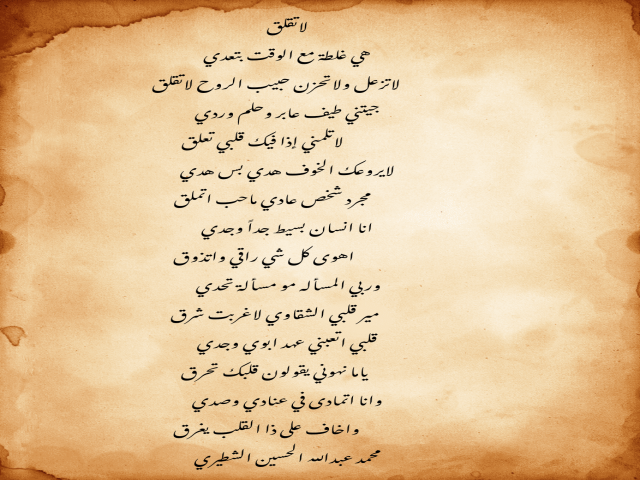 لاتقلق
هي غلطة مع الوقت بتعدي
لاتزعل ولاتحزن حبيب الروح لاتقلق
جيتني طيف عابر وحلم وردي
لاتلمني إذا فيك قلبي تعلق
لايروعك الخوف هدي بس هدي
مجرد شخص عادي ماحب اتملق
انا انسان بسيط جداً وجدي
اهوى كل شي راقي واتذوق
وربي المسأله مو مسألة تحدي
مير قلبي الشقاوي لاغربت شرق
قلبي اتعبني عهد ابوي وجدي
ياما نهوني يقولون قلبك تحرق
وانا اتمادى في عنادي وصدي
واخاف على ذا القلب يغرق
محمد عبدالله الحسين الشطيري